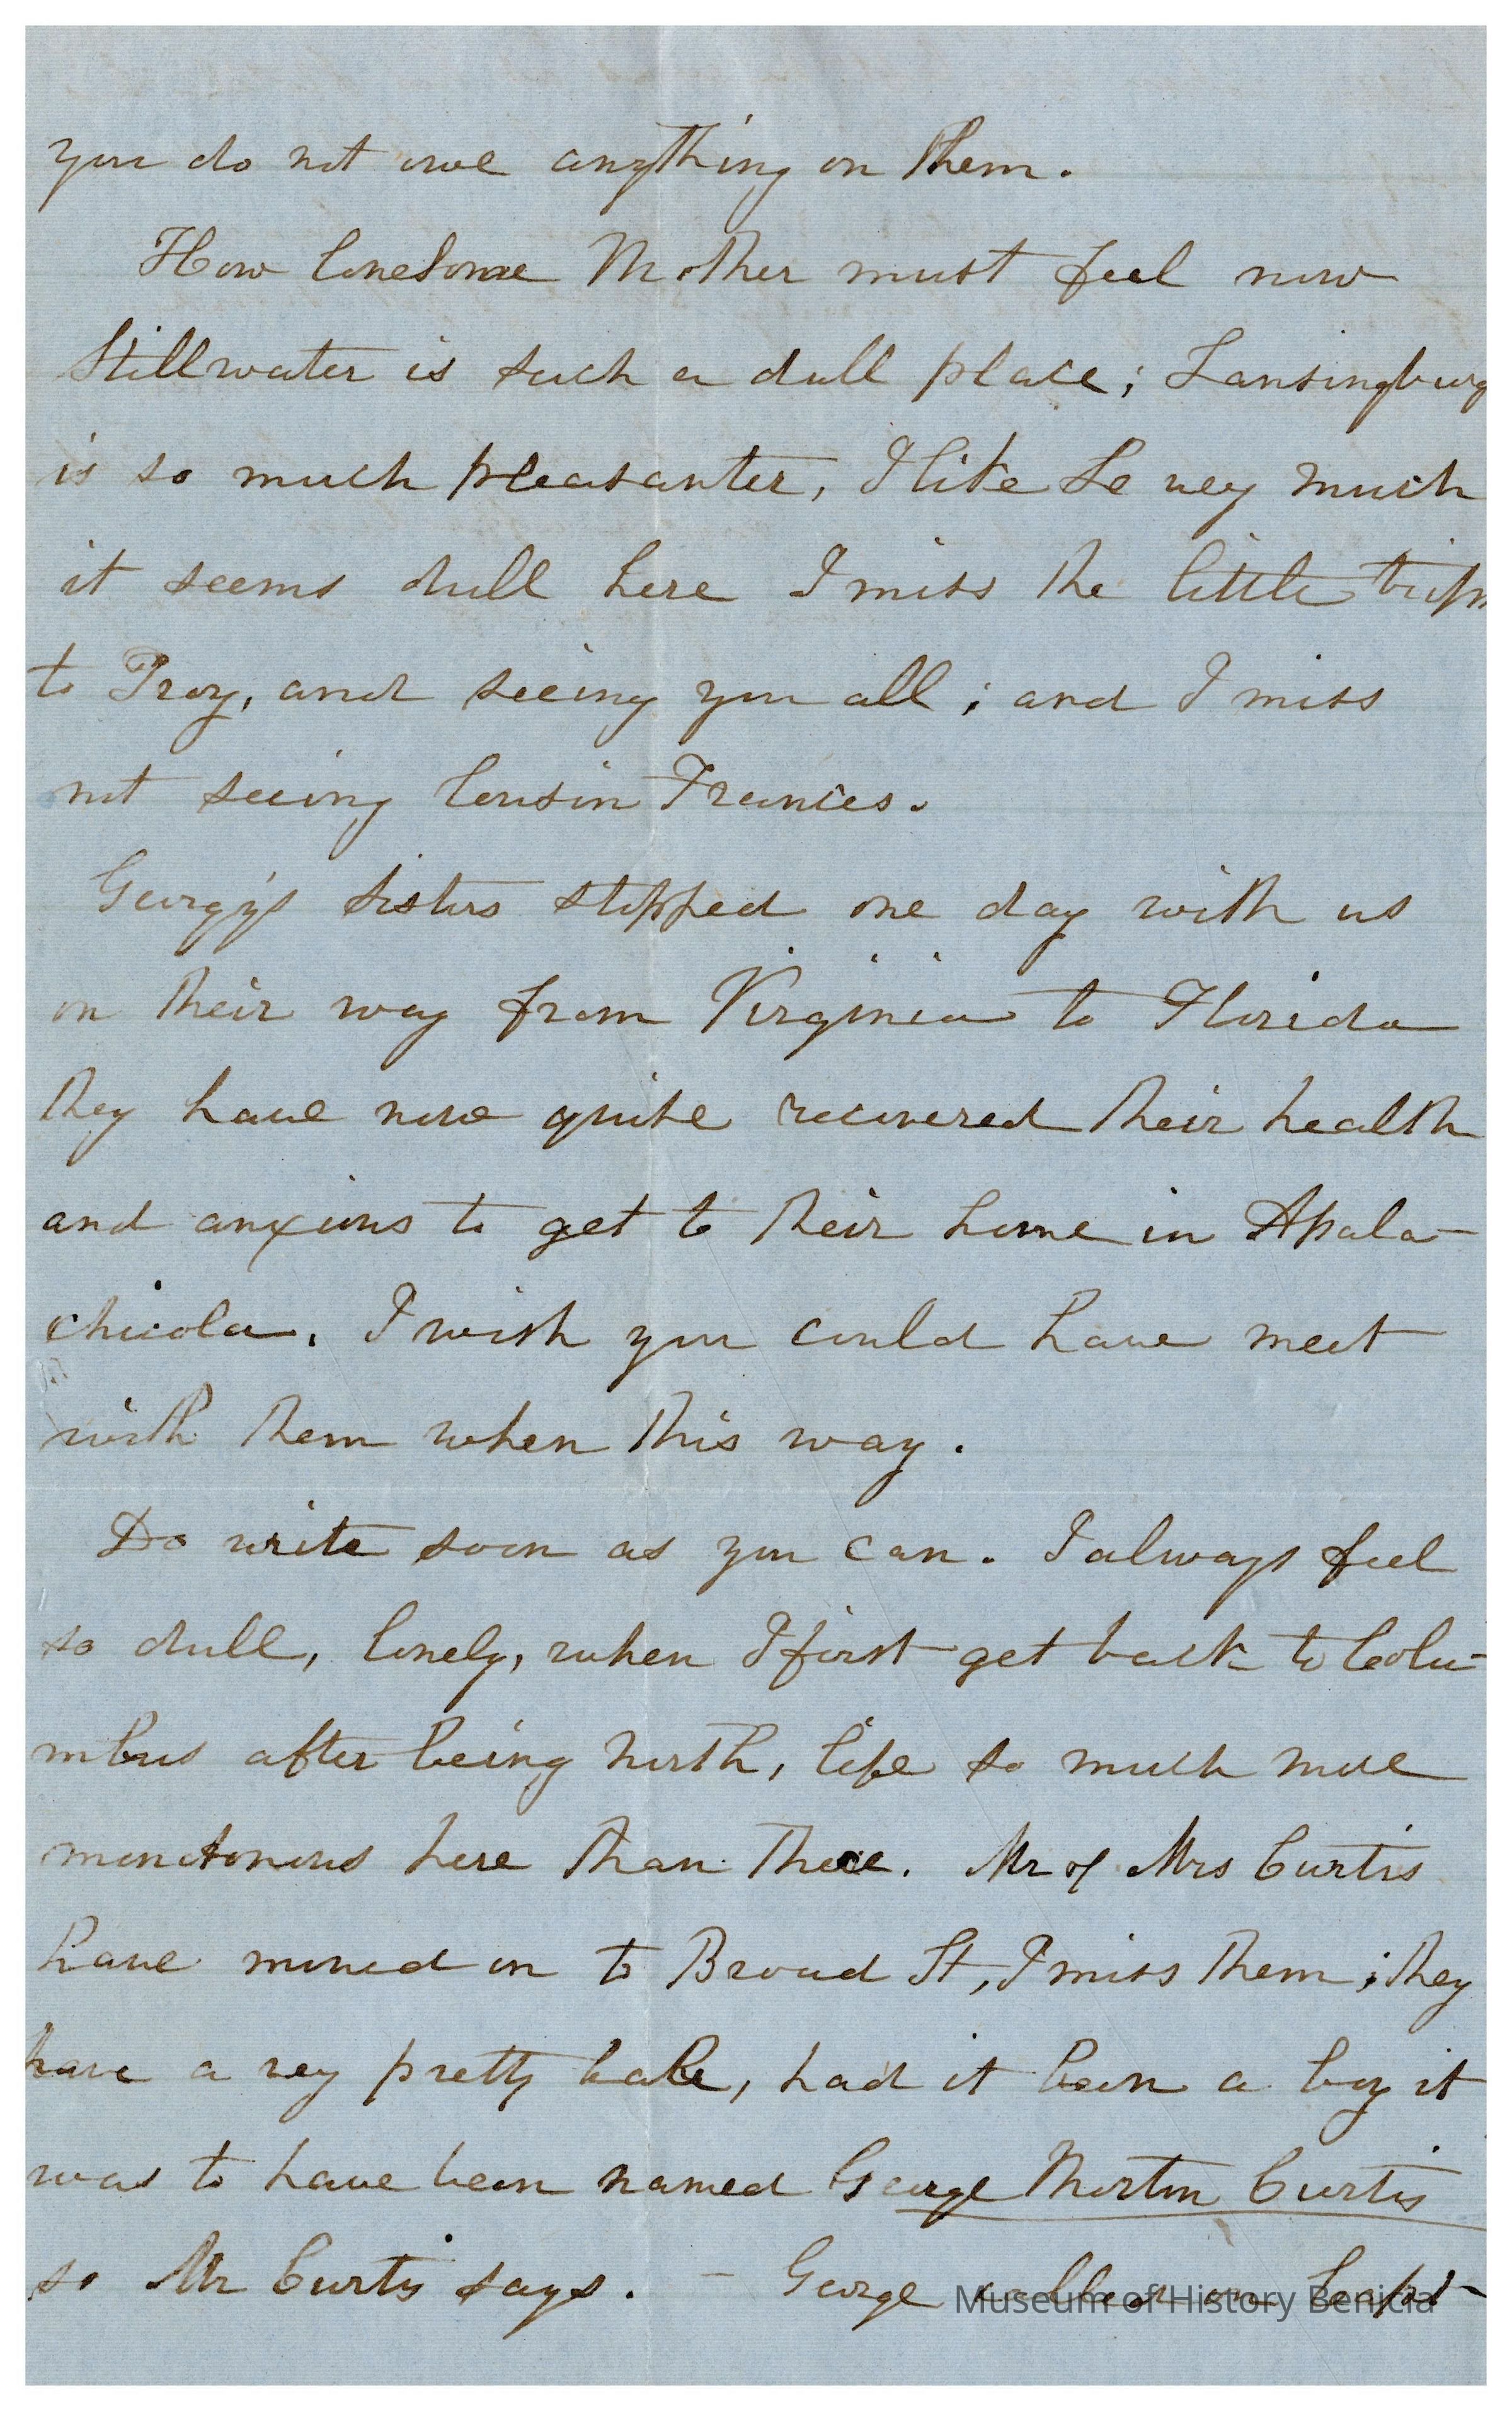 you do not owe anything on them.
How lonesome Mother must feel now
Stillwater is such a dull place; Lansingburg
is so much pleasanter, I like so very much
it seems dull here I miss the little trips
to Troy, and seeing you all; and I miss
not seeing Cousin Frances.
Georgy's sisters stopped one day with us
on their way from Virginia to Florida
they have now quite recovered their health
and anxious to get to their home in Apala-
chicola. I wish you could have meet
with them when this way.
Do write soon as you can. I always feel
so dull, lonely, when I first get back to Colu-
mbus after being north, life so much more
monotonous here than there. Mr & Mrs Curtis
have moved on to Broad St, I miss them; they
have a very pretty babe, had it been a boy it
was to have been named George Morton Curtis
so Mr Curtis says. - George called on Capt-
Museum of History Benicia